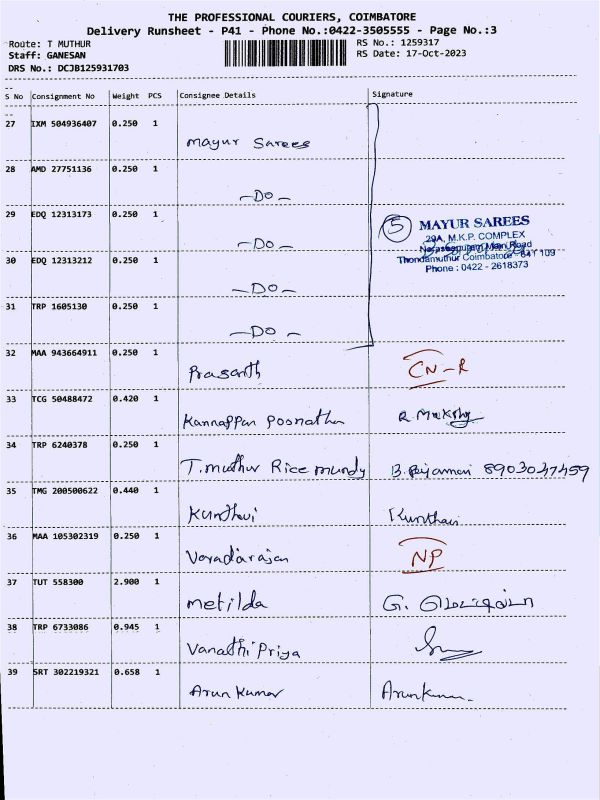 THE PROFESSIONAL COURIERS, COIMBATORE
Delivery Runsheet - P41 - Phone No.:0422-3505555 - Page No.:3
Route: T MUTHUR
RS No.: 1259317
Staff: GANESAN
RS Date: 17-Oct-2023
DRS No.: DCJB125931703
S No Consignment No Weight PCS Consignee Details Signature
27 IXM 504936407 0.250 1 Mayur Sarees
28 AMD 27751136 0.250 1 -Do-
29 EDQ 12313173 0.250 1 -Do-
5 MAYUR SAREES
29A, M.K.P. COMPLEX
Naraseepuram Main Road
30 EDQ 12313212 0.250 1 -Do-
Thondamuthur Coimbatore - 641 109
Phone : 0422 - 2618373
31 TRP 1605130 0.250 1 -Do-
32 MAA 943664911 0.250 1 Prasanth CN-R
33 TCG 50488472 0.420 1 Kannappan Poonatha
34 TRP 6240378 0.250 1 T.muthur Rice mundy 8903047459
35 TMG 200500622 0.440 1 Kunthavi Kunthavi
36 MAA 105302319 0.250 1 Varadarajan NP
37 TUT 558300 2.900 1 metilda G.
38 TRP 6733086 0.945 1 Vanathi Priya
39 SRT 302219321 0.658 1 Arun Kumar Arunkumar